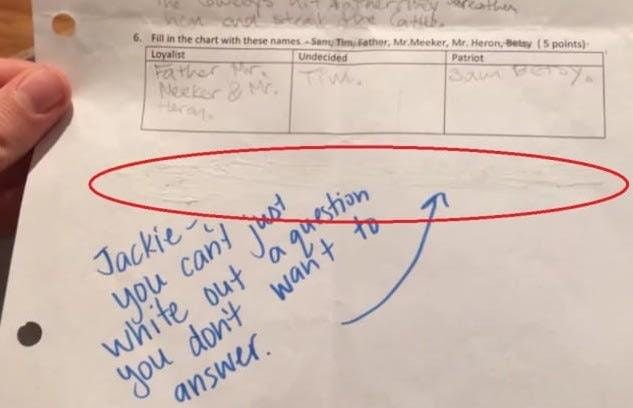 the Cowboys hit Anther they
hem and steal the Cattle.
6. Fill in the chart with these names. - Sam, Tim, Father, Mr.Meeker, Mr. Heron, Betsy ( 5 points)
Loyalist Undecided Patriot
Father Mr. Tim. Sam Betsy.
Meeker & Mr.
Heron.
Jackie -
you can't just
white out a question
you don't want to
answer.